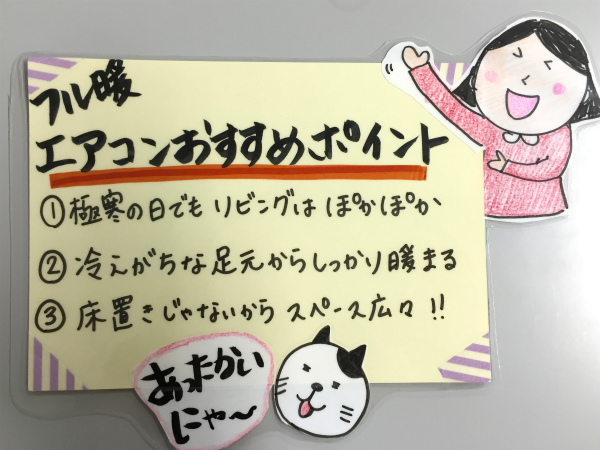 フル暖
エアコンおすすめポイント
①極寒の日でもリビングはぽかぽか
②冷えがちな足元からしっかり暖まる
③床置きじゃないからスペース広々!!
あったかい
にゃ〜